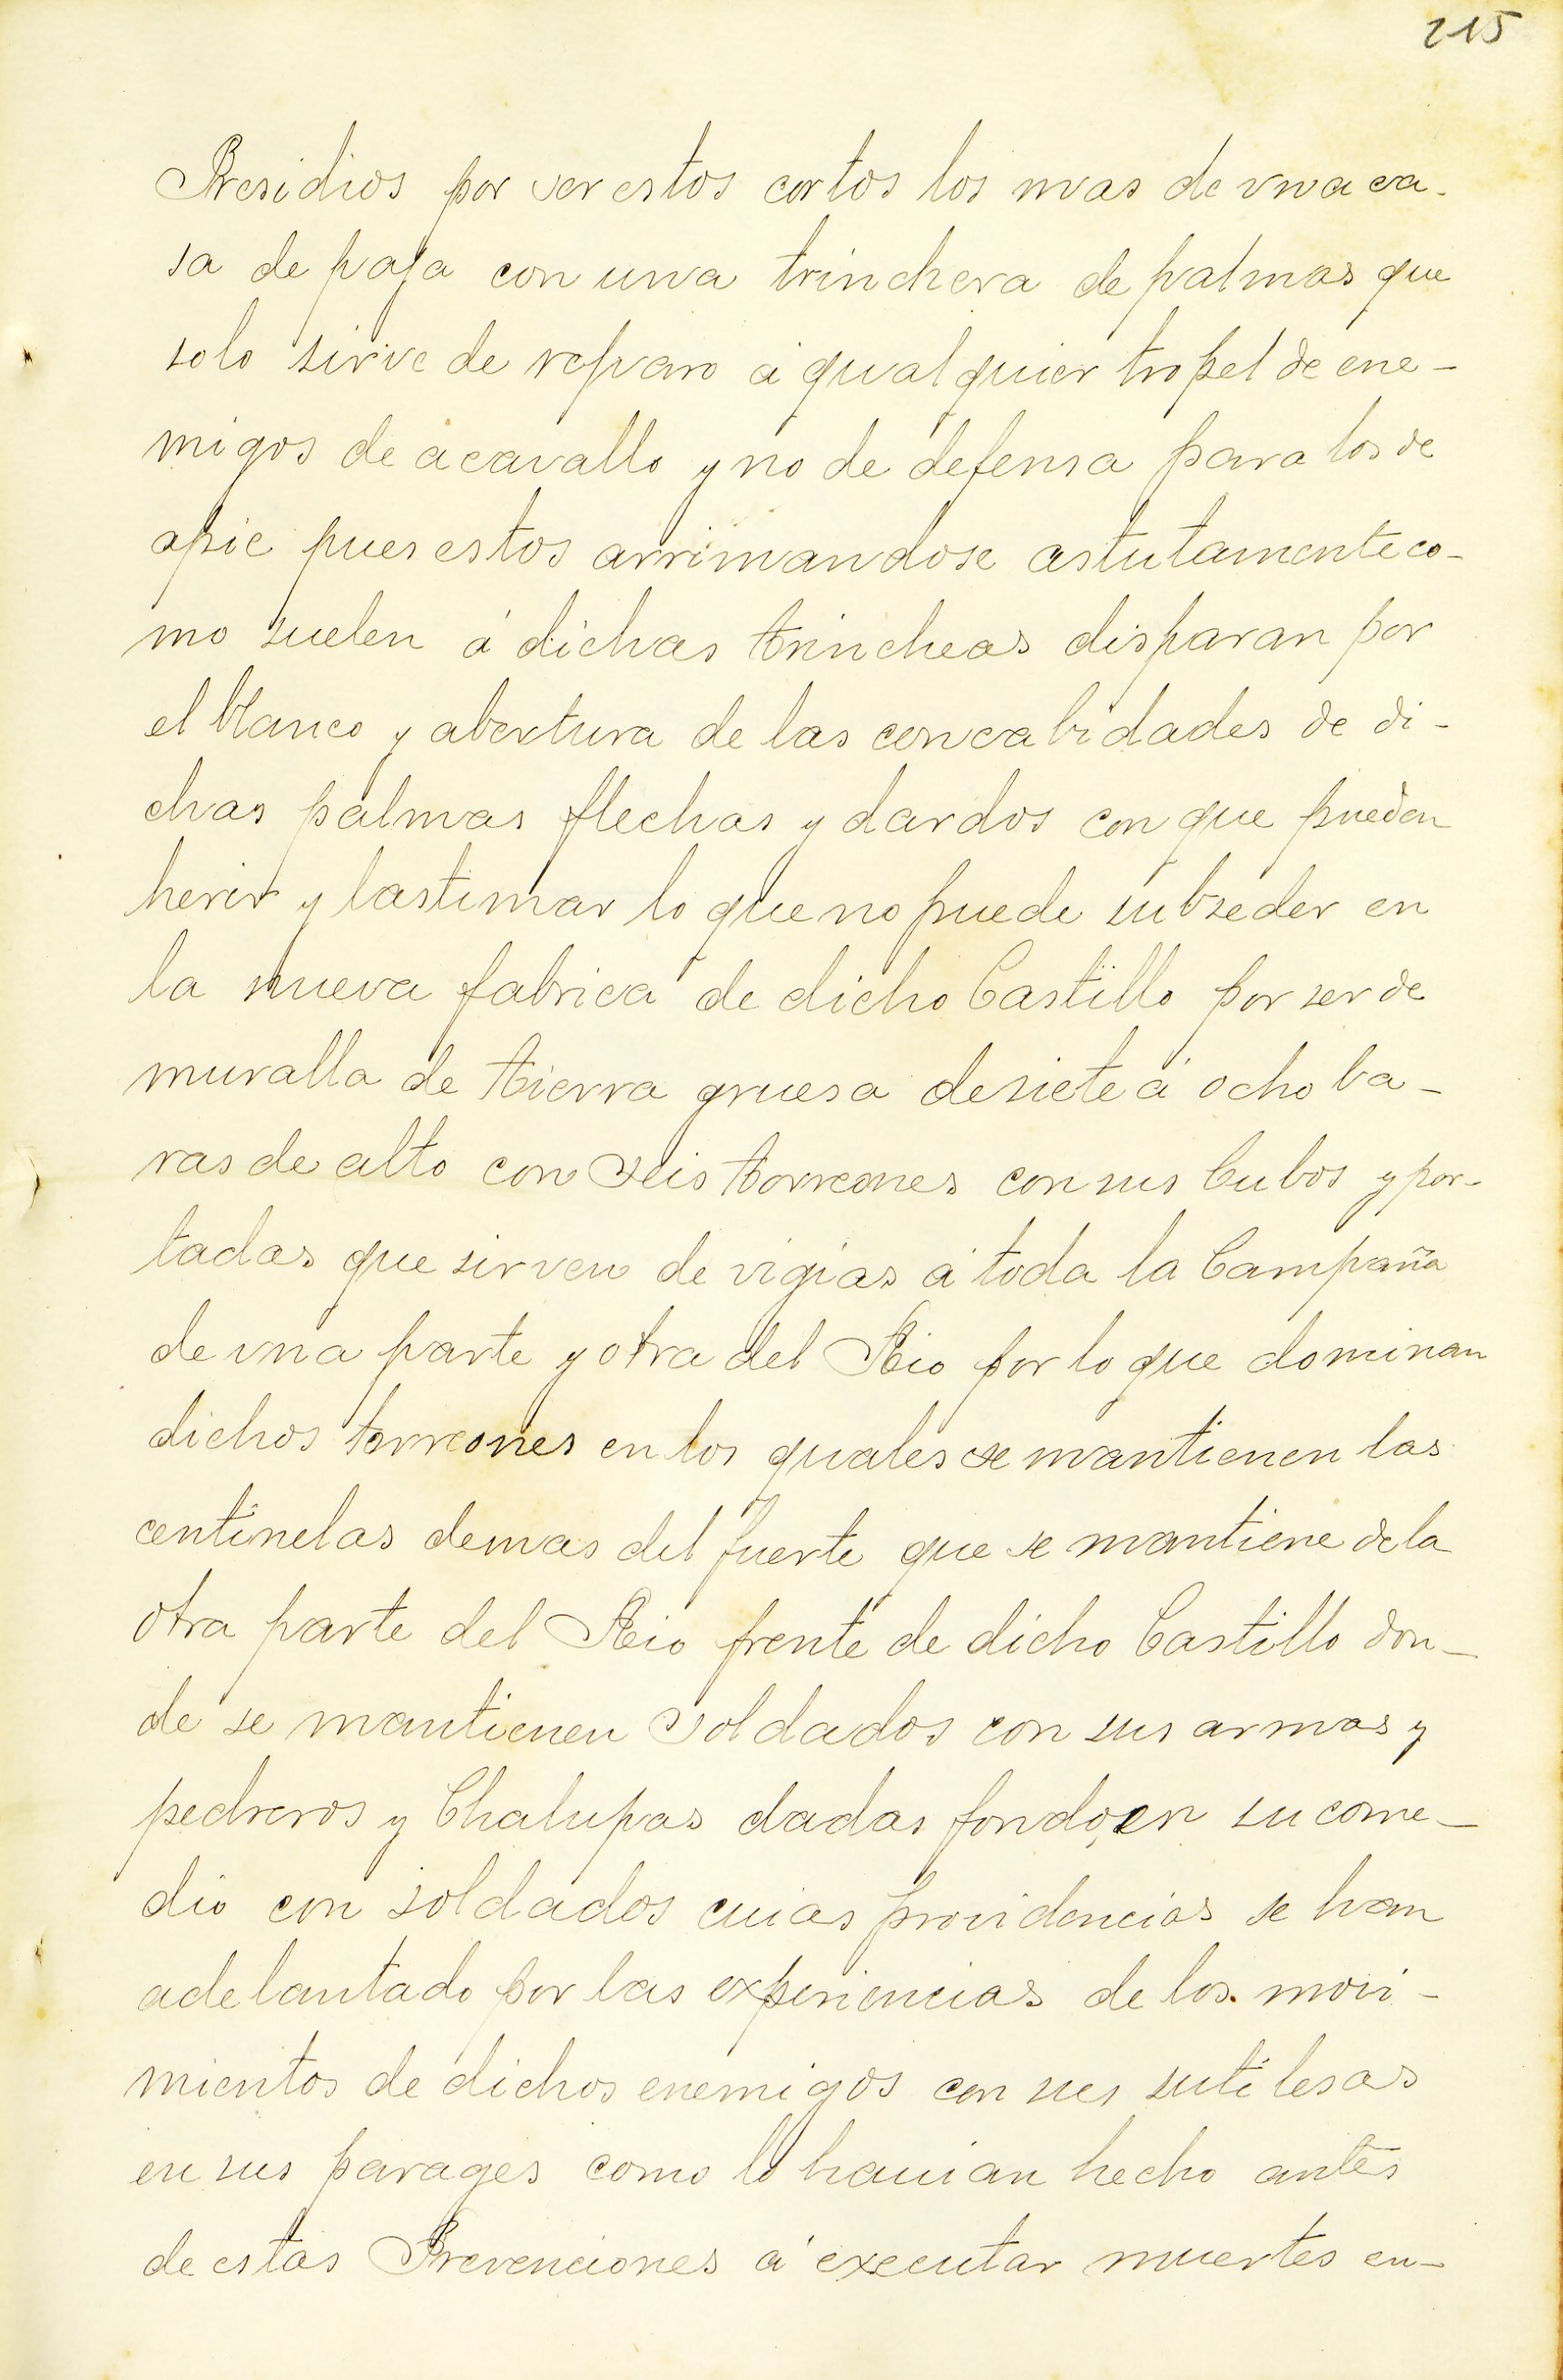 215
Presidios por ser estos cortos los mas de vna ca-
sa de paja con una trinchera de palmas que
solo sirve de reparo á qualquier tropel de ene-
migos de acavallo y no de defensa para los de
apie pues estos arrimandose astutamente co-
mo suelen á dichas trincheas disparan por
el blanco y abertura de las concabidades de di-
chas palmas flechas y dardos con que pueden
herir y lastimar lo que no puede subseder en
la nueva fabrica de dicho Castillo por ser de
muralla de tierra gruesa de siete á ocho ba-
ras de alto con seis torreones con sus Cubos y por-
tadas que sirven de vigias á toda la Campaña
de vna parte y otra del Rio por lo que dominan
dichos torreones en los quales se mantienen las
centinelas demas del fuerte que se mantiene de la
otra parte del Rio frente de dicho Castillo don-
de se mantienen soldados con sus armas y
pedreros y Chalupas dadas fondo, en su come-
dio con soldados cuias providencias se han
adelantado por las experiencias de los movi-
mientos de dichos enemigos con sus sutilesas
en sus parages como lo hauian hecho antes
de estas Prevenciones á executar muertes en-